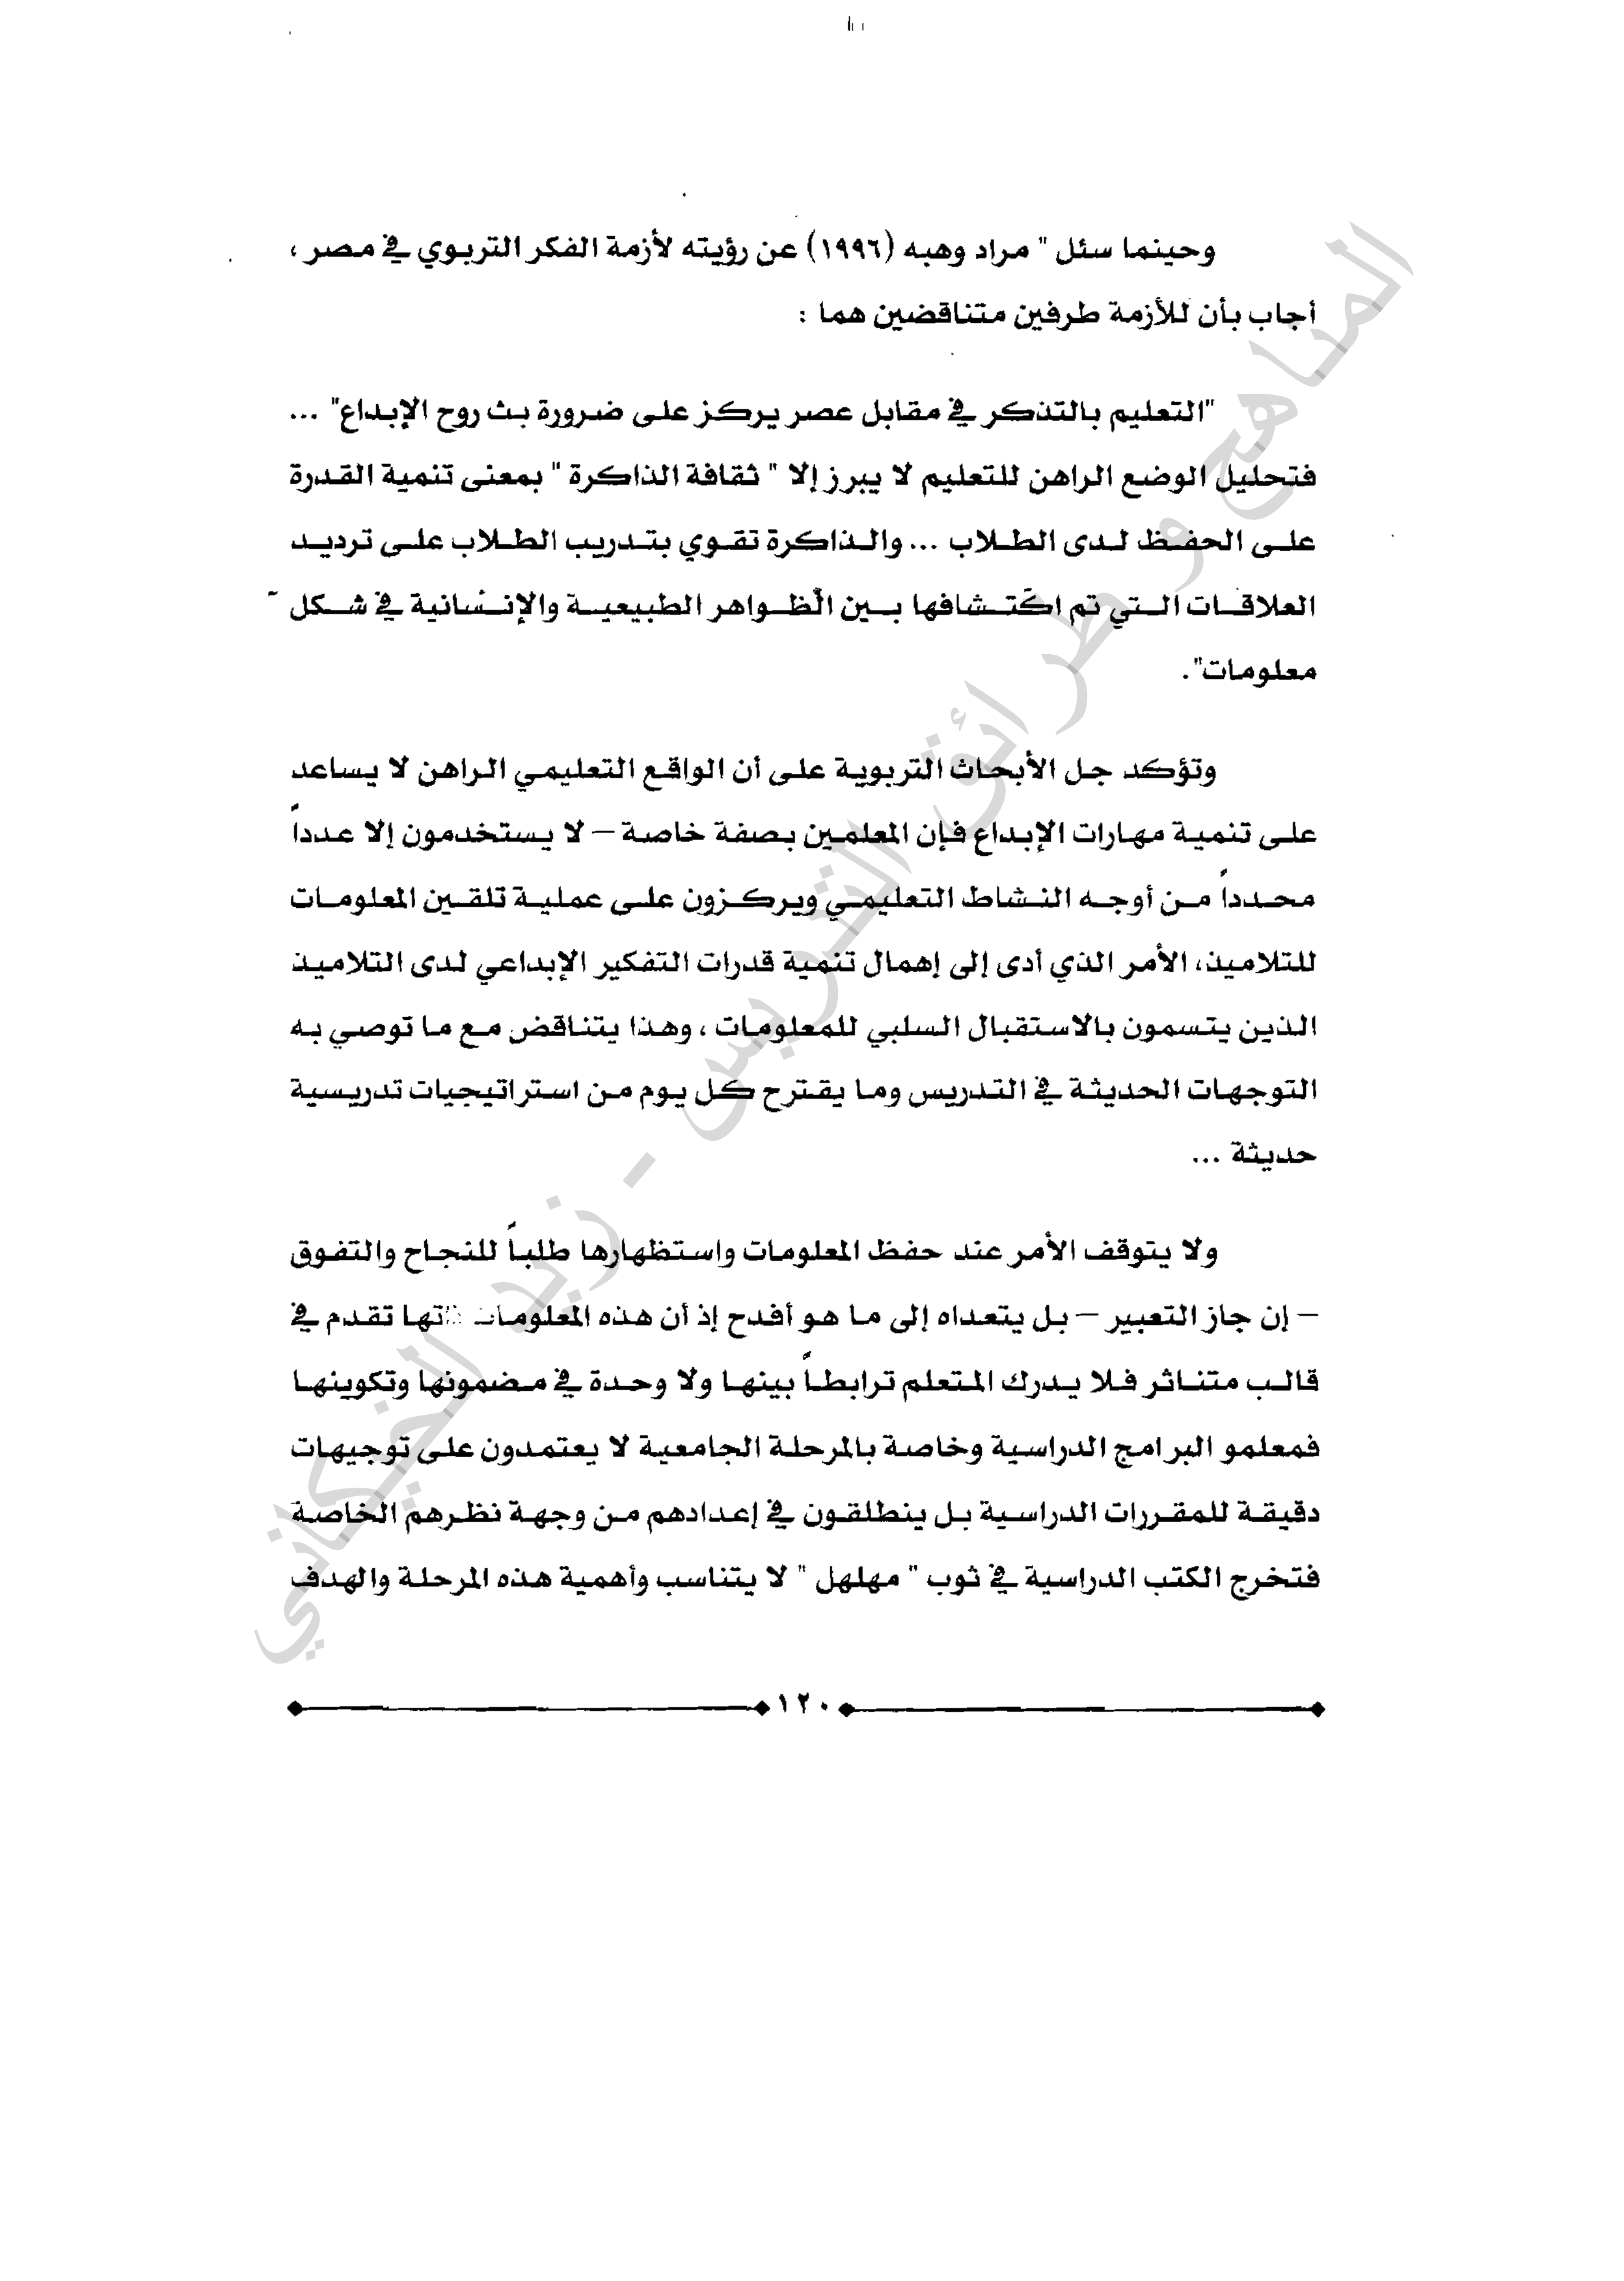 وحينما سئل " مراد وهبه (١٩٩٦) عن رؤيته لأزمة الفكر التربوي في مصر ،
أجاب بأن للأزمة طرفين متناقضين هما :
"التعليم بالتذكر في مقابل عصر يركز على ضرورة بث روح الإبداع" ...
فتحليل الوضع الراهن للتعليم لا يبرز إلا " ثقافة الذاكرة " بمعنى تنمية القدرة
على الحفظ لدى الطلاب ... والذاكرة تقوي بتدريب الطلاب على ترديد
العلاقات التي تم اكتشافها بين الظواهر الطبيعية والإنسانية في شكل
معلومات".
وتؤكد جل الأبحاث التربوية على أن الواقع التعليمي الراهن لا يساعد
على تنمية مهارات الإبداع فإن المعلمين بصفة خاصة – لا يستخدمون إلا عدداً
محدداً من أوجه النشاط التعليمي ويركزون على عملية تلقين المعلومات
للتلاميذ، الأمر الذي أدى إلى إهمال تنمية قدرات التفكير الإبداعي لدى التلاميذ
الذين يتسمون بالاستقبال السلبي للمعلومات ، وهذا يتناقض مع ما توصي به
التوجهات الحديثة في التدريس وما يقترح كل يوم من استراتيجيات تدريسية
حديثة ...
ولا يتوقف الأمر عند حفظ المعلومات واستظهارها طلباً للنجاح والتفوق
– إن جاز التعبير – بل يتعداه إلى ما هو أفدح إذ أن هذه المعلومات ذاتها تقدم في
قالب متناثر فلا يدرك المتعلم ترابطاً بينها ولا وحدة في مضمونها وتكوينها
فمعلمو البرامج الدراسية وخاصة بالمرحلة الجامعية لا يعتمدون على توجيهات
دقيقة للمقررات الدراسية بل ينطلقون في إعدادهم من وجهة نظرهم الخاصة
فتخرج الكتب الدراسية في ثوب " مهلهل " لا يتناسب وأهمية هذه المرحلة والهدف
١٢٠
المناهج و طرائق التدريس - زيد الخيكاني